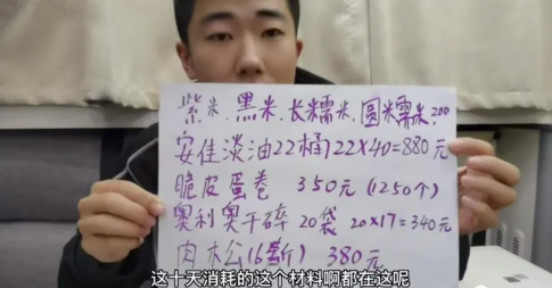 紫米、黑米、长糯米、圆米糯米:200
安佳淡油22桶)22×40=880元
脆皮蛋卷 350元(1250个)
奥利奥干碎20袋 20×17=340元
肉松(6斤) 380元
这十天消耗的这个材料啊都在这呢